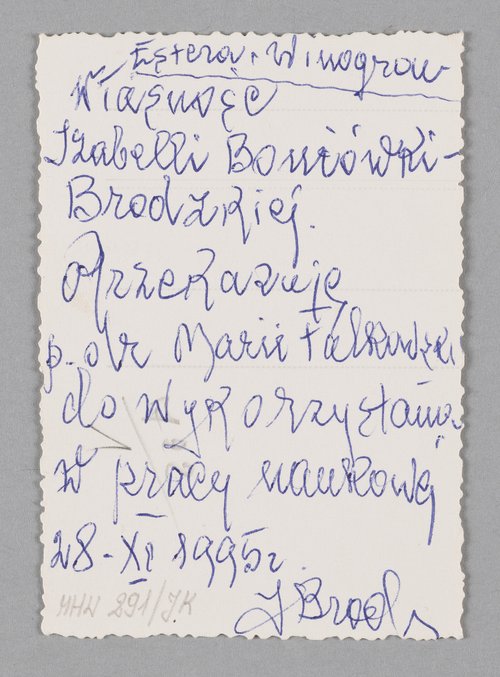 Estera Winograw
Własność
Izabelli Bontówki-
Brodzkiej.
Przekazuję
p. dr Marii Falkowskiej
do wykorzystania
w pracy naukowej
28-XI 1995r.
I Brod
MHW 291/JK